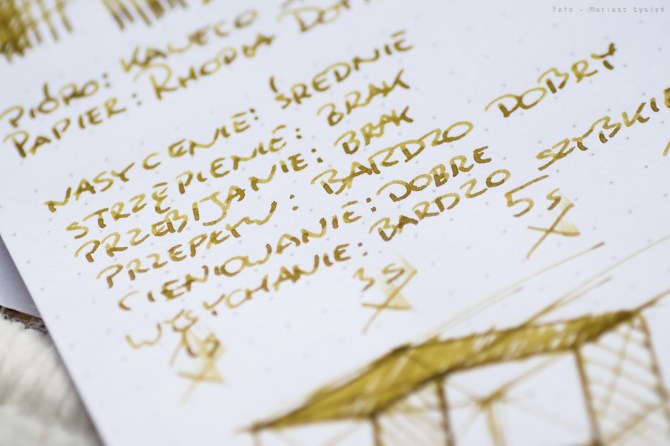 Foto - Mariusz Łysień
PIÓRO: KAWECO
PAPIER: RHODIA DOT
NASYCENIE: ŚREDNIE
STRZĘPIENIE: BRAK
PRZEBIJANIE: BRAK
PRZEPŁYW: BARDZO DOBRY
CIENIOWANIE: DOBRE
WYSYCHANIE: BARDZO SZYBKIE
3s 5s